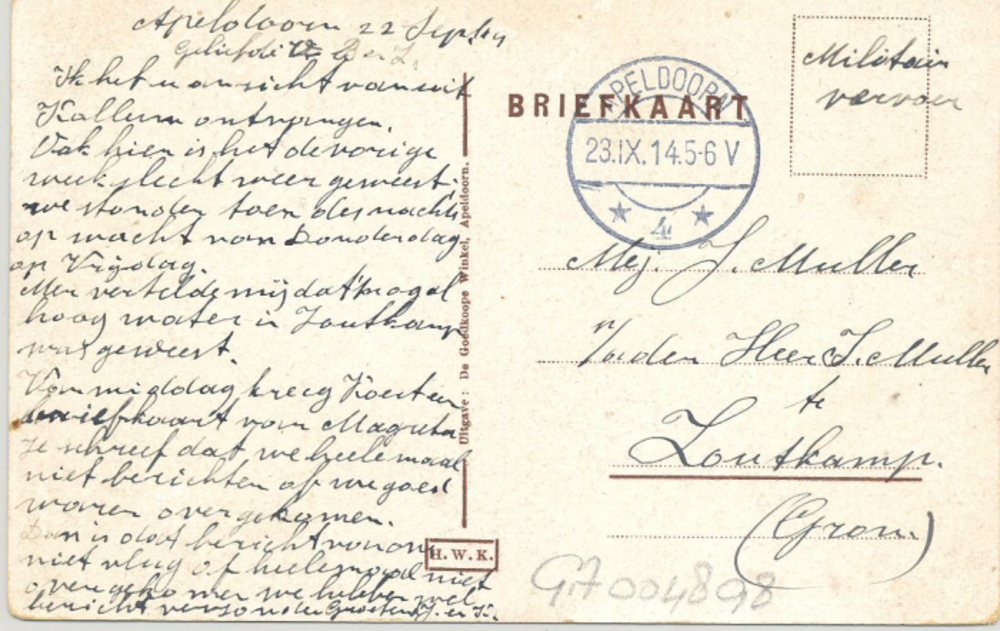 Apeldoorn 22 Sept 14
Geliefde
Ik heb u ansicht van uit
Kollum ontvangen.
Ook hier is het de vorige
week slecht weer geweest.
we stonden toen des nachts
op wacht van Donderdag
op Vrijdag.
Men vertelde mij dat 't nogal
hoog water in Zoutkamp
was geweest.
Van middag kreeg Koert een
briefkaart van Magreta
Ze schreef dat we heelemaal
niet berichten of we goed
waren overgekomen.
Dan is dat bericht van ons
niet vlug of heelemaal niet
overgekomen we hebben wel
bericht verzonden Groeten J. en K.
Uitgave: De Goedkoope Winkel, Apeldoorn.
H.W.K.
BRIEFKAART
APELDOORN
23.IX.14.5-6 V
4
Militair
vervoer
Mej. J. Muller
p/a den Heer J. Muller
te
Zoutkamp.
(Gron.)
GA004898